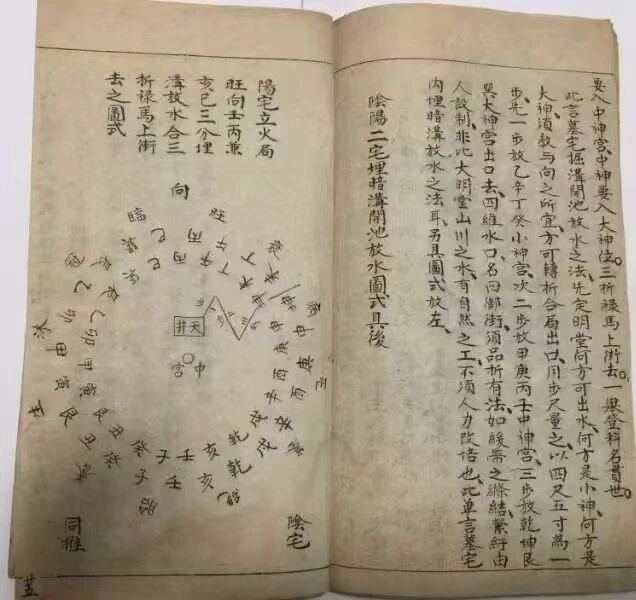 要入中神宫中神要入大神位三折祿馬上街去一舉登科名貫世
此言墓宅掘溝開池放水之法先定明堂何方可出水何方是小神何方是
大神須教与向之所宜方可轉折合局出口用步尺量之以四尺五寸為一
步先一步放乙辛丁癸小神宫次二步放甲庚丙壬中神宫三步放乾坤艮
巽大神宫出口去四維水口名曰御街須品折有法如緩帶之縧結縈紆由
人設制非比大明堂山川之水有自然之工不須人力改倍也此单言墓宅
内埋暗溝放水之法耳另具圖式於左
陰陽二宅埋暗溝開池放水圖式具後
陽宅立火局
旺向壬丙兼
亥巳三分埋
溝放水合三
折祿馬上街
去之圖式
向
旺
臨
沐
生
胎
巳
丙
午
丁
未
坤
申
庚
酉
辛
戌
乾
亥
壬
子
癸
丑
艮
寅
甲
卯
乙
天井
中宫
陰宅
同推